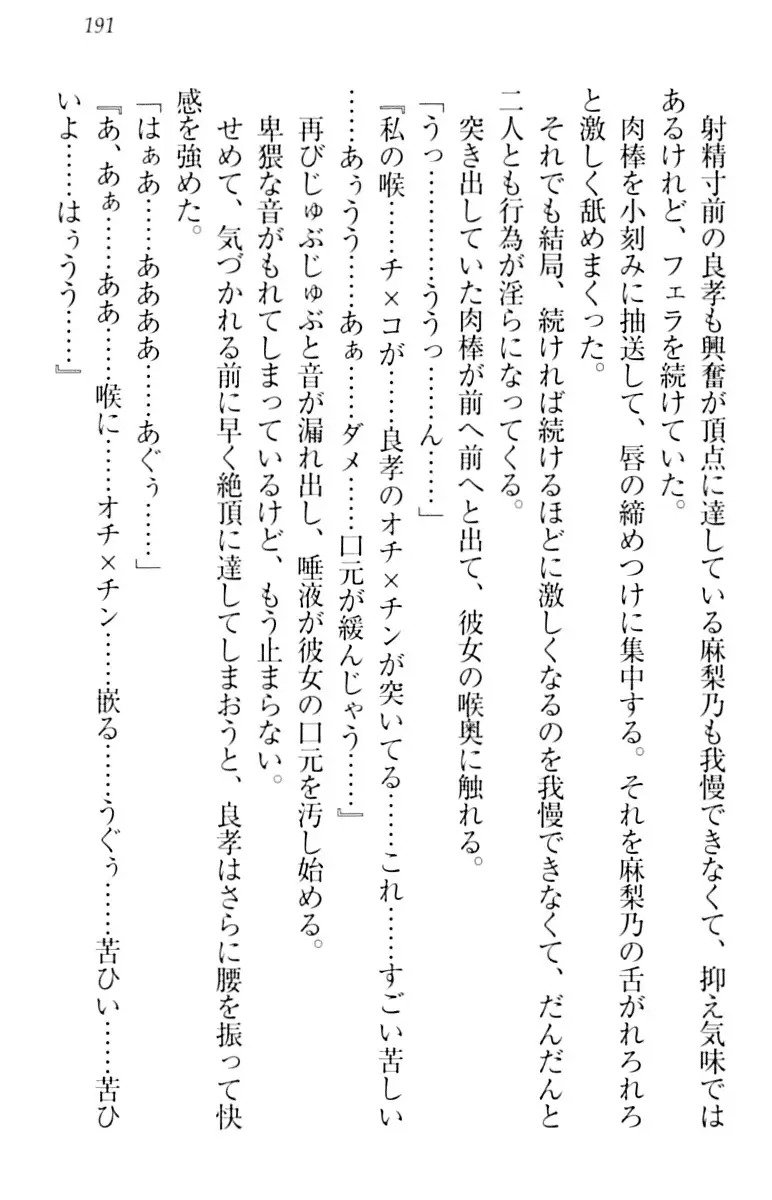 191
射精寸前の良孝も興奮が頂点に達している麻梨乃も我慢できなくて、抑え気味では
あるけれど、フェラを続けていた。
肉棒を小刻みに抽送して、唇の締めつけに集中する。それを麻梨乃の舌がれろれろ
と激しく舐めまくった。
それでも結局、続ければ続けるほどに激しくなるのを我慢できなくて、だんだんと
二人とも行為が淫らになってくる。
突き出していた肉棒が前へ前へと出て、彼女の喉奥に触れる。
「うっ…………ううっ………ん……」
『私の喉……チ×コが……良孝のオチ×チンが突いてる……これ………すごい苦しい
……あぅうう……あぁ……ダメ……口元が緩んじゃう……』
再びじゅぶじゅぶと音が漏れ出し、唾液が彼女の口元を汚し始める。
卑猥な音がもれてしまっているけど、もう止まらない。
せめて、気づかれる前に早く絶頂に達してしまおうと、良孝はさらに腰を振って快
感を強めた。
「はぁあ……ああああ……あぐぅ……」
『あ、あぁ……ああ……喉に……オチ×チン……嵌る……うぐぅ……苦ひい……苦ひ
いよ……はぅうう……』